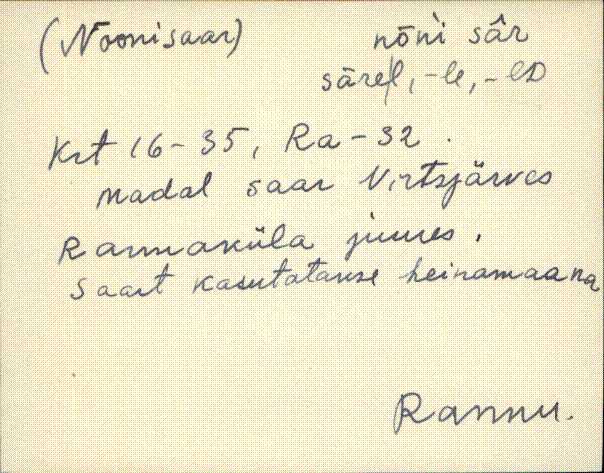 (Noonisaar) nōni sâr
sārel, -le, -lD
Krt 16-35, Ra-32.
madal saar Virtsjärves
Rannaküla juures.
Saart kasutatakse heinamaana
Rannu.